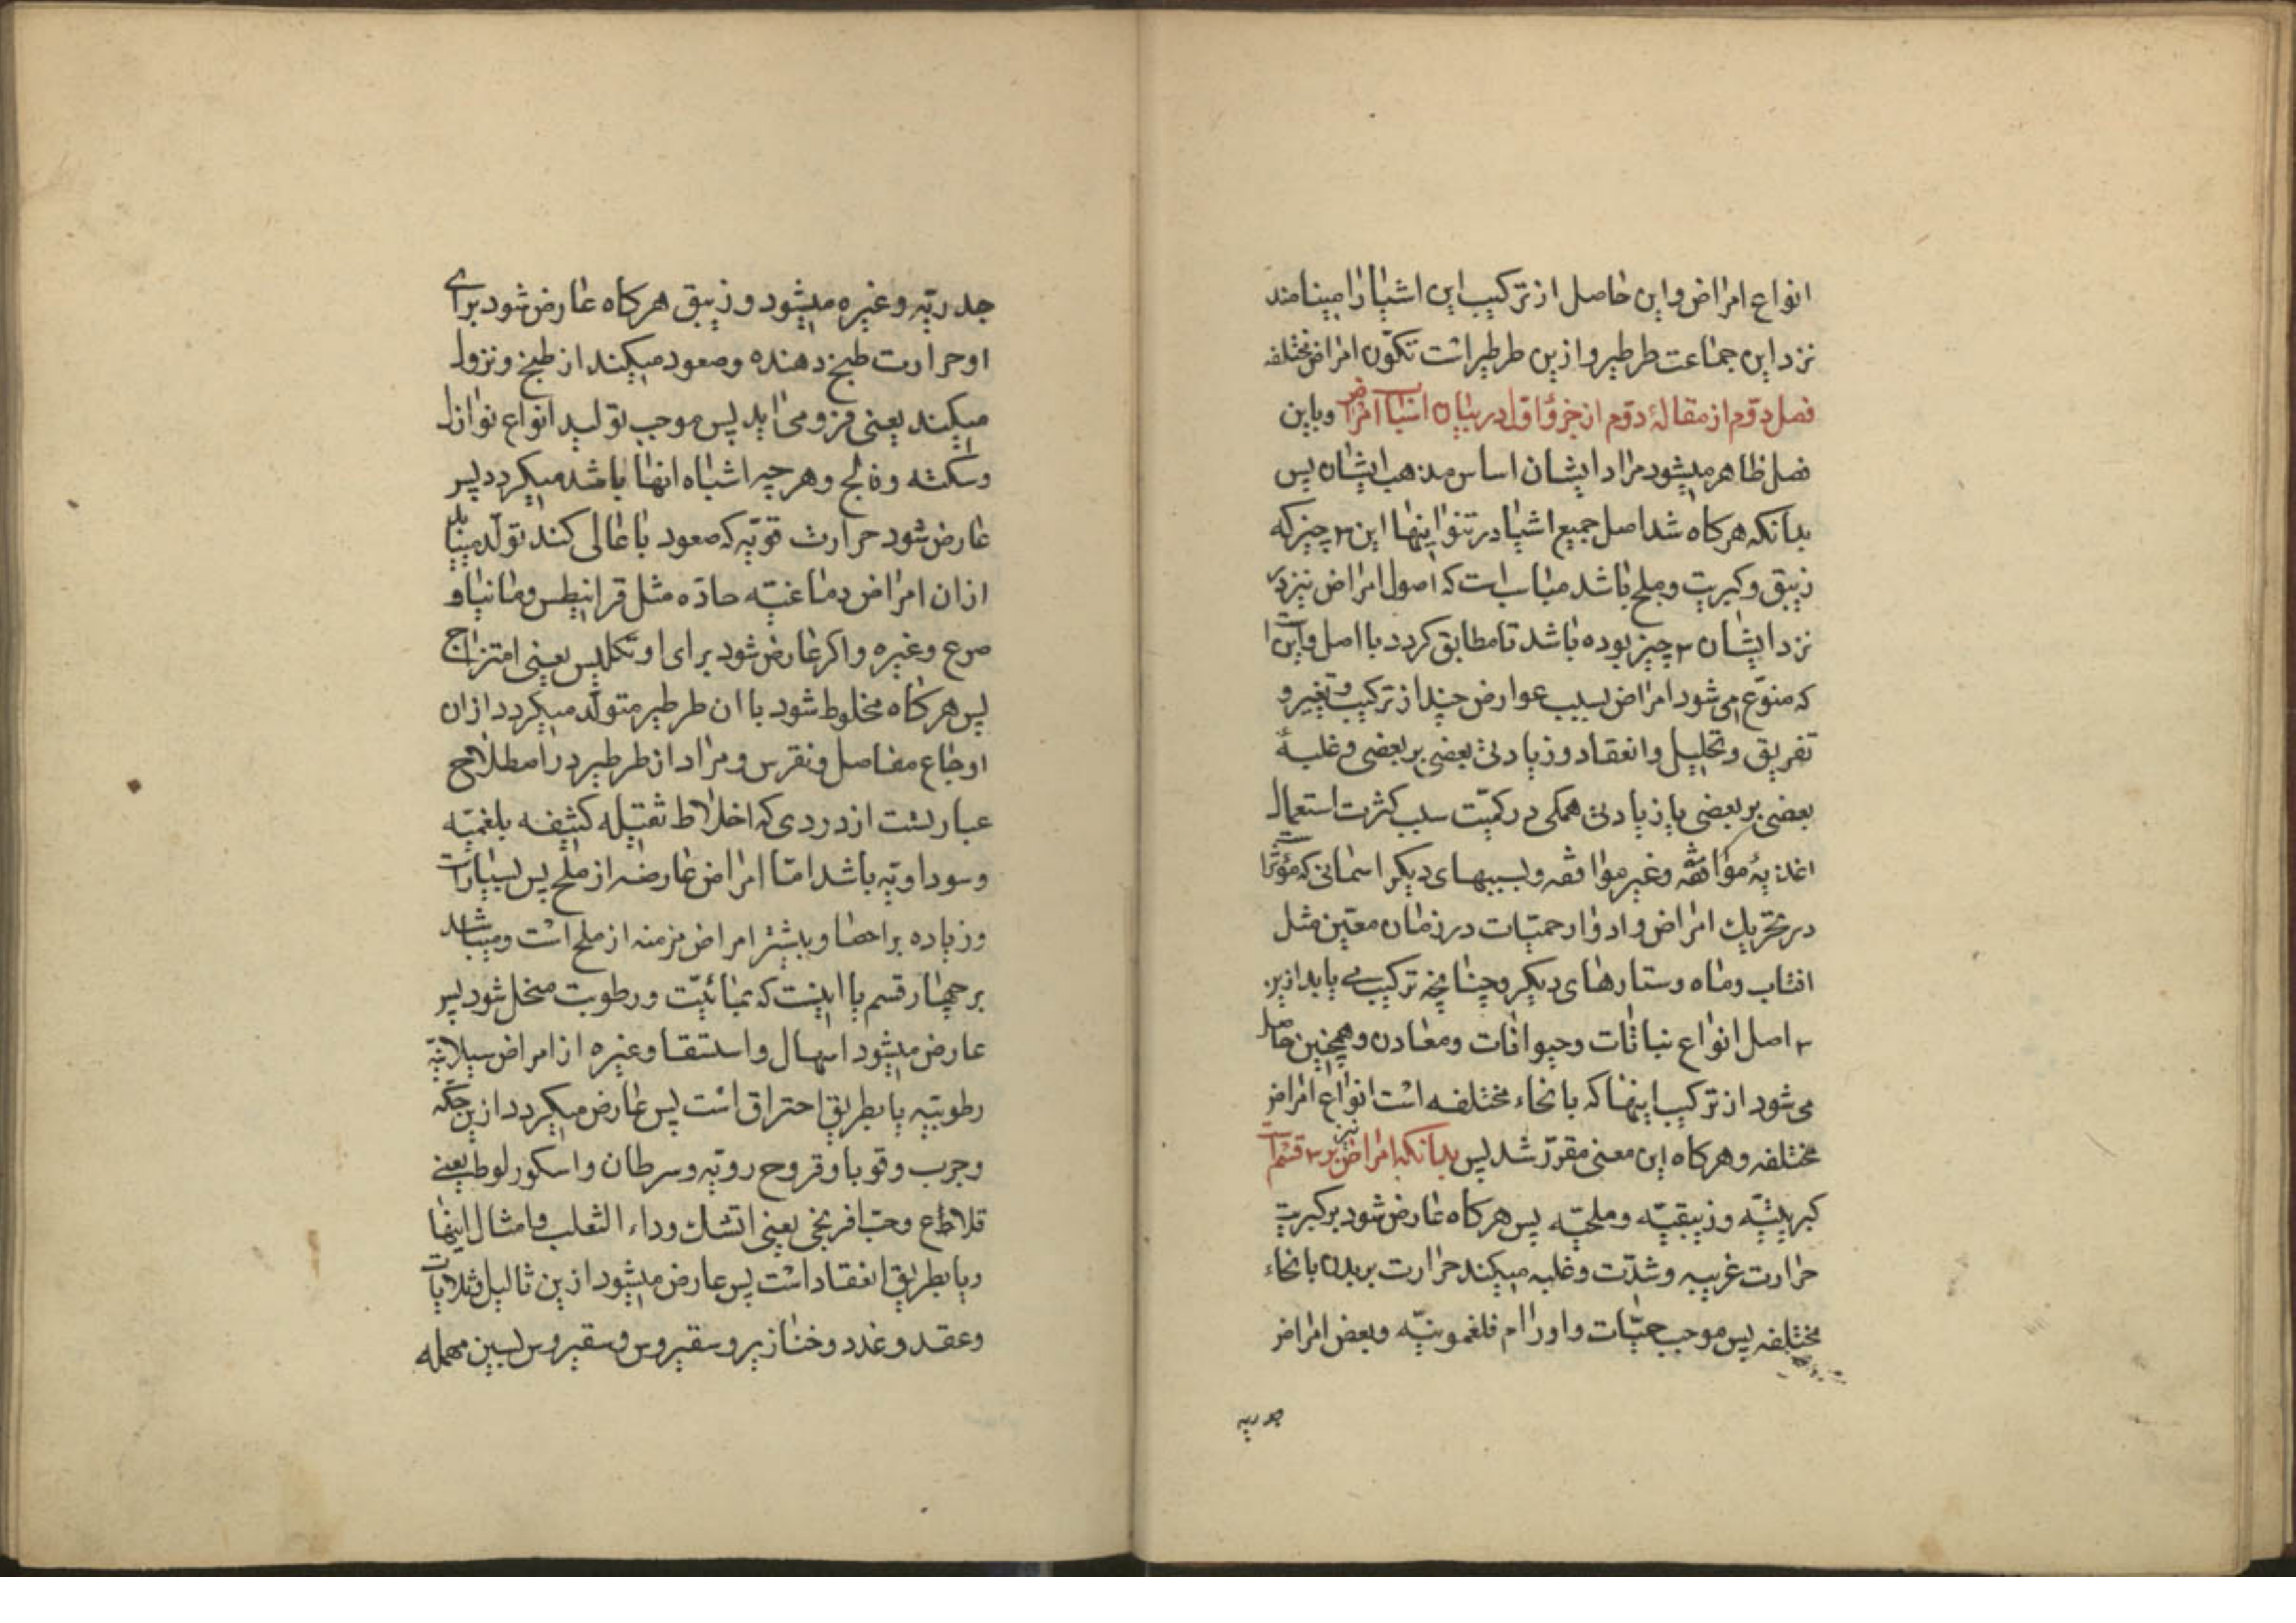 انواع امراض و این حاصل از ترکیب این اشیا را مینامند
نزد این جماعت طرطیر و ازین طرطیر است تکوّن امراض مختلفه
فصل دوم از مقالهٔ دوم از جزؤ اول در بیان اسباب امراض و باین
فصل ظاهر میشود مراد ایشان اساس مذهب ایشان پس
بدانکه هرکاه شد اصل جمیع اشیا در اینها این ۳ چیز که
زیبق و کبریت و ملح باشد مناسب است که اصول امراض نیز
نزد ایشان ۳ چیز بوده باشد تا مطابق کردد با اصل و این
که منوّع می شود امراض بسبب عوارض چند از ترکیب و تغییر و
تفریق و تحلیل و انعقاد و زیادتی بعضی بر بعضی و غلبهٔ
بعضی بر بعضی یا زیادتی همکی در کمیّت سبب کثرت استعمال
اغذیهٔ موافقه و غیر موافقه و بسببهای دیکر اسمانی که مؤثر است
در تحریك امراض و ادوار حمیّات در زمان معیّن مثل
افتاب و ماه و ستارهای دیکر و چنانچه ترکیب می یابد ازین
۳ اصل انواع نباتات و حیوانات و معادن و همچنین حاصل
می شود از ترکیب اینها که بانحاء مختلفه است انواع امراض
مختلفه و هرکاه این معنی مقرّر شد پس بدانکه امراض نیز بر ۳ قسم است
کبریتیّه و زیبقیّه و ملحیّه پس هرکاه عارض شود بر کبریت
حرارت غریبه و شدّت و غلبه میکند حرارت بر بدن بانحاء
مختلفه پس موجب حمیّات و اورام فلغمونیّه و بعض امراض
جدریه
جدریّه و غیره میشود و زیبق هرکاه عارض شود برای
او حرارت طبخ دهنده و صعود میکند از طبخ و نزول
میکند یعنی فرو می اید پس موجب تولید انواع نوازل
و سکته و فالج و هر چه اشباه انها باشد میکردد پس
عارض شود حرارت قویّه که صعود با عالی کند تولّد مییابد
از ان امراض دماغیّه حادّه مثل قرانیطس و مانیا و
صرع و غیره و اکر عارض شود برای او تکلیس یعنی امتزاج
پس هرکاه مخلوط شود با ان طرطیر متولّد میکردد از ان
اوجاع مفاصل و نقرس و مراد از طرطیر در اصطلاح
عبارتست از دردی که اخلاط ثقیله کثیفه بلغمیّه
و سوداویّه باشد امّا امراض عارضه از ملح پس بسیار است
و زیاده بر احصا و بیشتر امراض مزمنه از ملح است و میباشد
بر چهار قسم یا اینست که بمائیّت و رطوبت منحل شود پس
عارض میشود اسهال و استسقا و غیره از امراض سیلانیّه
رطوبیّه یا بطریق احتراق است پس عارض میکردد ازین حکّه
و جرب و قوبا و قروح رویّه و سرطان و اسکوربوط یعنی
قلاطع و حبّ افرنجی یعنی اتشك و داء الثعلب و امثال اینها
و یا بطریق انعقاد است پس عارض میشود ازین ثالیل و
و عقد و غدد و خنازیر و سقیروس و سقیروس بسین مهمله